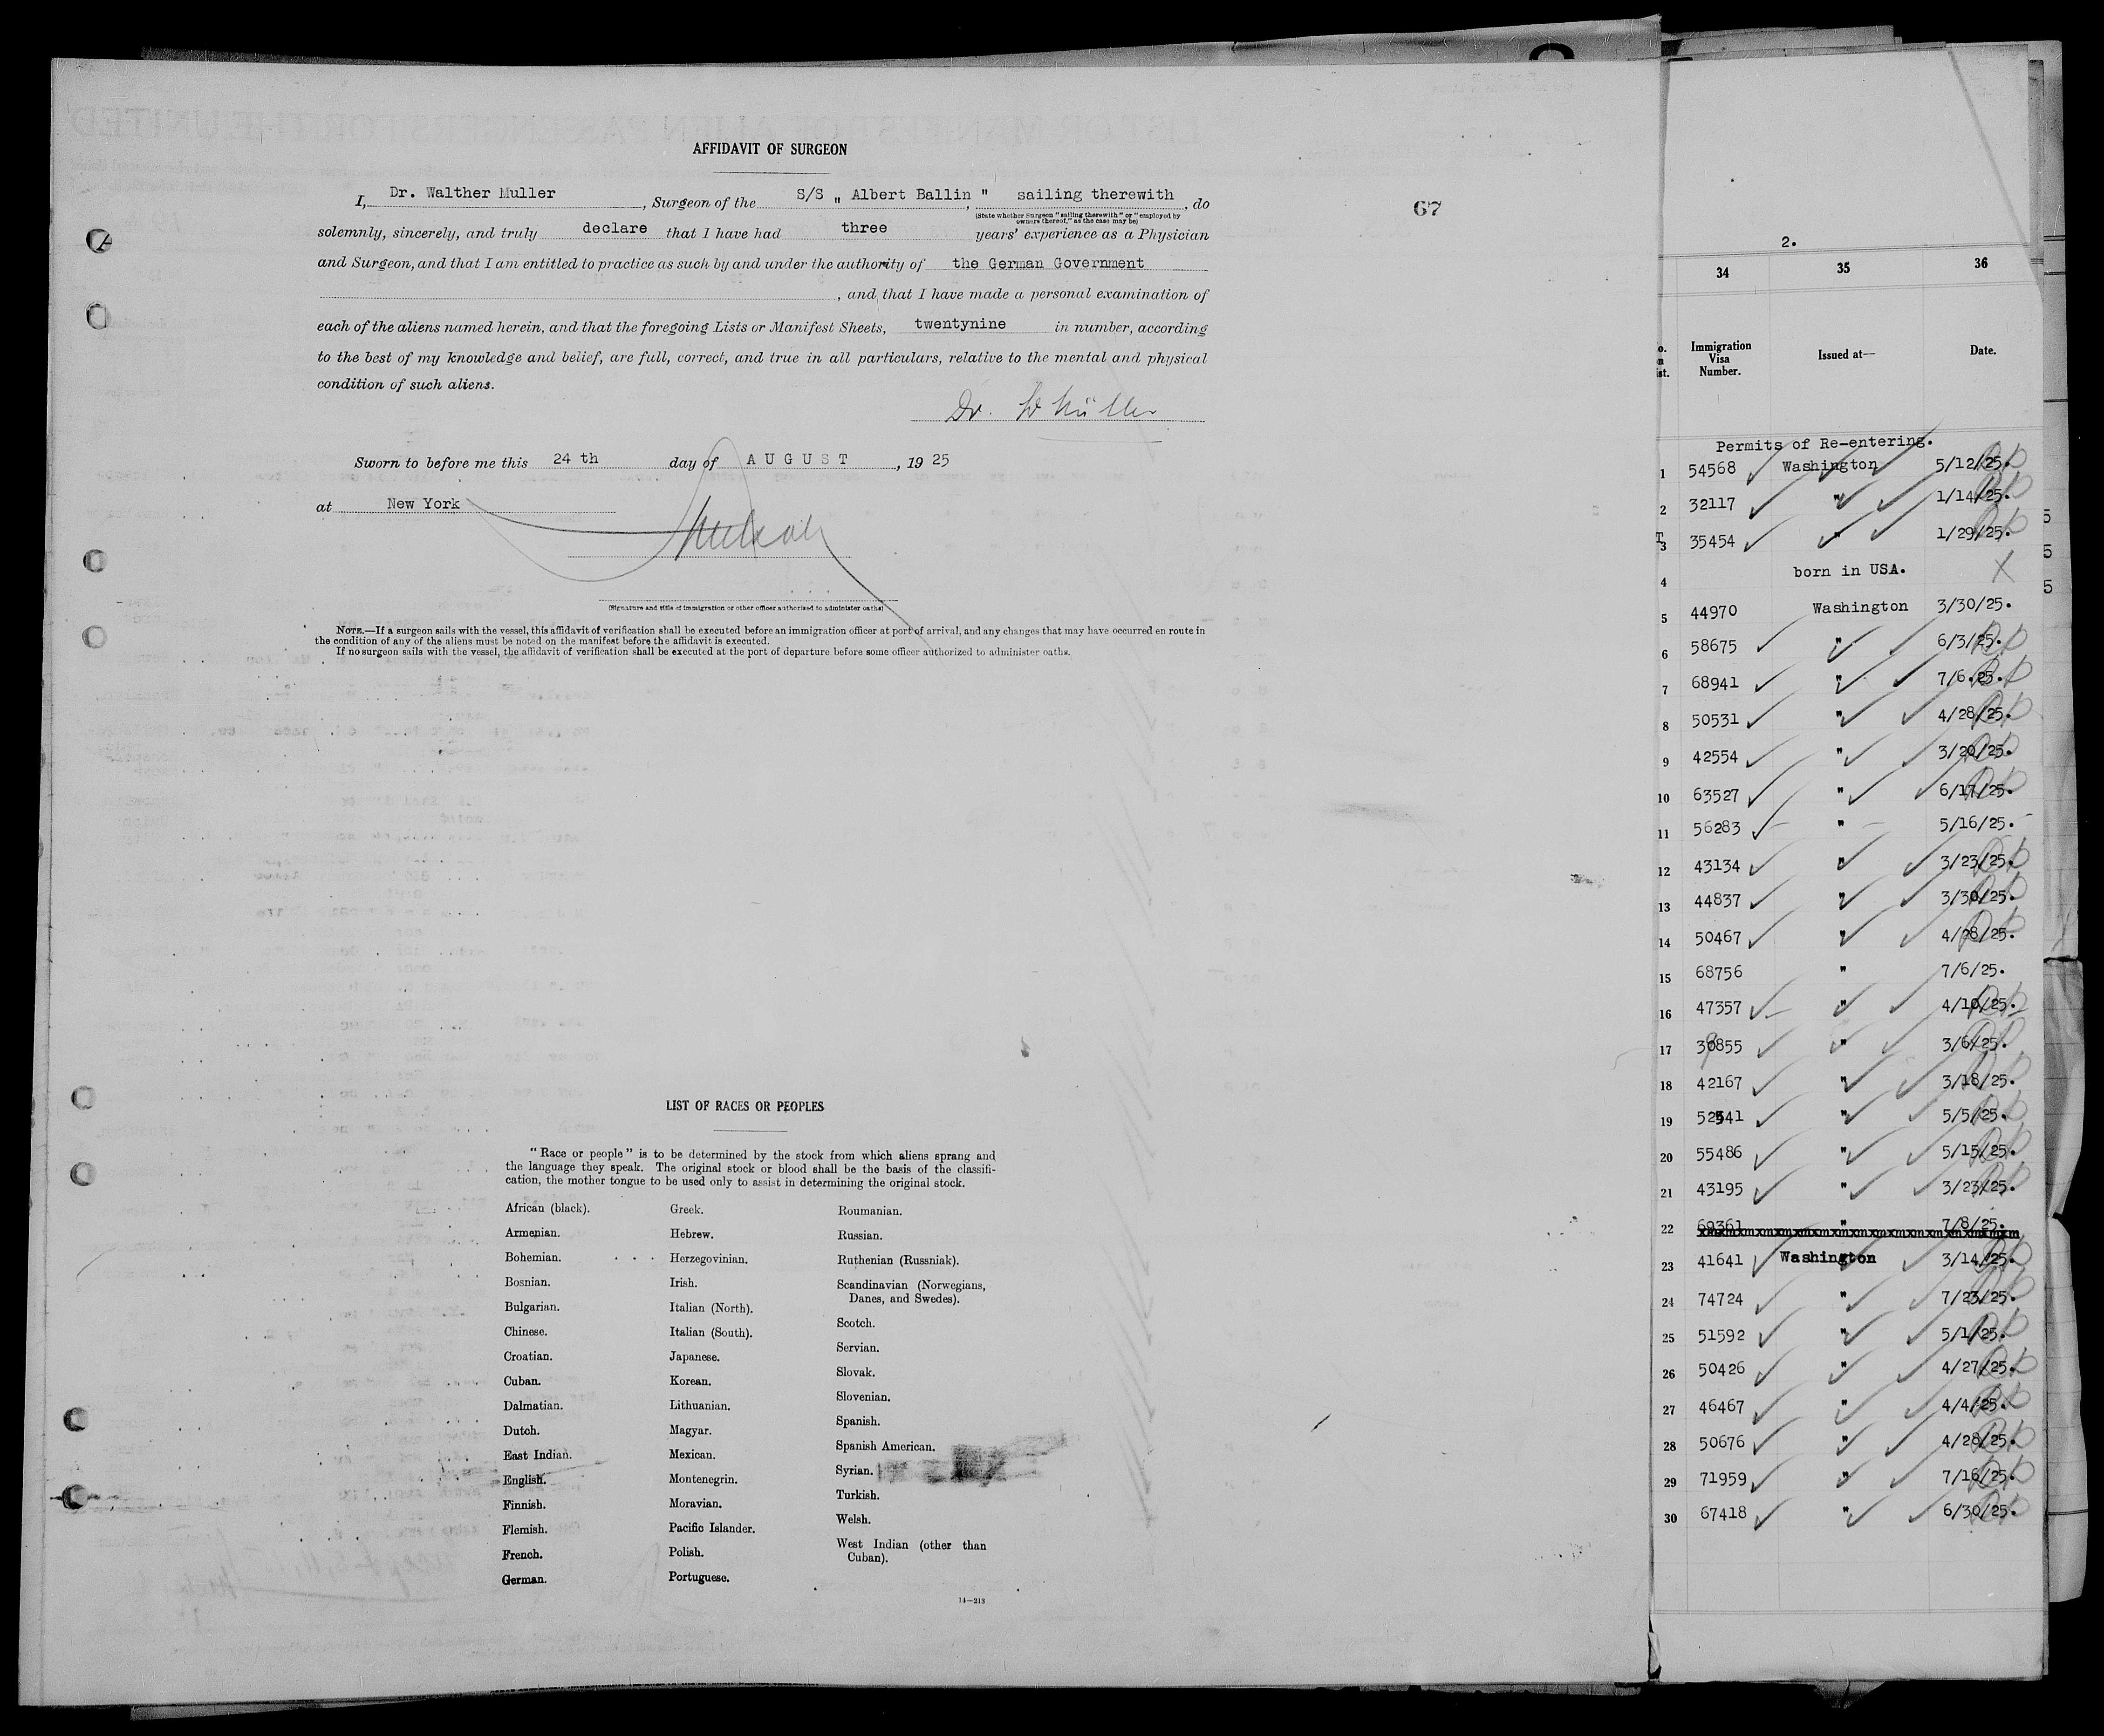 AFFIDAVIT OF SURGEON
I, Dr. Walther Muller, Surgeon of the S/S " Albert Ballin ", sailing therewith, do
(State whether Surgeon "sailing therewith" or "employed by
owners thereof," as the case may be)
solemnly, sincerely, and truly declare that I have had three years' experience as a Physician
and Surgeon, and that I am entitled to practice as such by and under the authority of the German Government
, and that I have made a personal examination of
each of the aliens named herein, and that the foregoing Lists or Manifest Sheets, twentynine in number, according
to the best of my knowledge and belief, are full, correct, and true in all particulars, relative to the mental and physical
condition of such aliens.
Dr. W Müller
Sworn to before me this 24 th day of AUGUST, 19 25
at New York
(Signature and title of immigration or other officer authorized to administer oaths)
NOTE.—If a surgeon sails with the vessel, this affidavit of verification shall be executed before an immigration officer at port of arrival, and any changes that may have occurred en route in
the condition of any of the aliens must be noted on the manifest before the affidavit is executed.
If no surgeon sails with the vessel, the affidavit of verification shall be executed at the port of departure before some officer authorized to administer oaths.
67
LIST OF RACES OR PEOPLES
"Race or people" is to be determined by the stock from which aliens sprang and
the language they speak. The original stock or blood shall be the basis of the classifi-
cation, the mother tongue to be used only to assist in determining the original stock.
African (black).
Armenian.
Bohemian.
Bosnian.
Bulgarian.
Chinese.
Croatian.
Cuban.
Dalmatian.
Dutch.
East Indian.
English.
Finnish.
Flemish.
French.
German.
Greek.
Hebrew.
Herzegovinian.
Irish.
Italian (North).
Italian (South).
Japanese.
Korean.
Lithuanian.
Magyar.
Mexican.
Montenegrin.
Moravian.
Pacific Islander.
Polish.
Portuguese.
Roumanian.
Russian.
Ruthenian (Russniak).
Scandinavian (Norwegians,
Danes, and Swedes).
Scotch.
Servian.
Slovak.
Slovenian.
Spanish.
Spanish American.
Syrian.
Turkish.
Welsh.
West Indian (other than
Cuban).
14—213
2.
34 35 36
Immigration
Visa
Number.
Issued at—
Date.
Permits of Re-entering.
1 54568 Washington 5/12/25.
2 32117 " 1/14/25.
3 35454 " 1/29/25.
4 born in USA. X
5 44970 Washington 3/30/25.
6 58675 " 6/3/25.
7 68941 " 7/6.25.
8 50531 " 4/28/25.
9 42554 " 3/20/25.
10 63527 " 6/17/25.
11 56283 " 5/16/25.
12 43134 " 3/23/25.
13 44837 " 3/30/25.
14 50467 " 4/28/25.
15 68756 " 7/6/25.
16 47357 " 4/10/25.
17 39855 " 3/6/25.
18 42167 " 3/18/25.
19 52541 " 5/5/25.
20 55486 " 5/15/25.
21 43195 " 3/23/25.
22 69361 " 7/8/25.
23 41641 Washington 3/14/25.
24 74724 " 7/23/25.
25 51592 " 5/1/25.
26 50426 " 4/27/25.
27 46467 " 4/4/25.
28 50676 " 4/28/25.
29 71959 " 7/16/25.
30 67418 " 6/30/25.